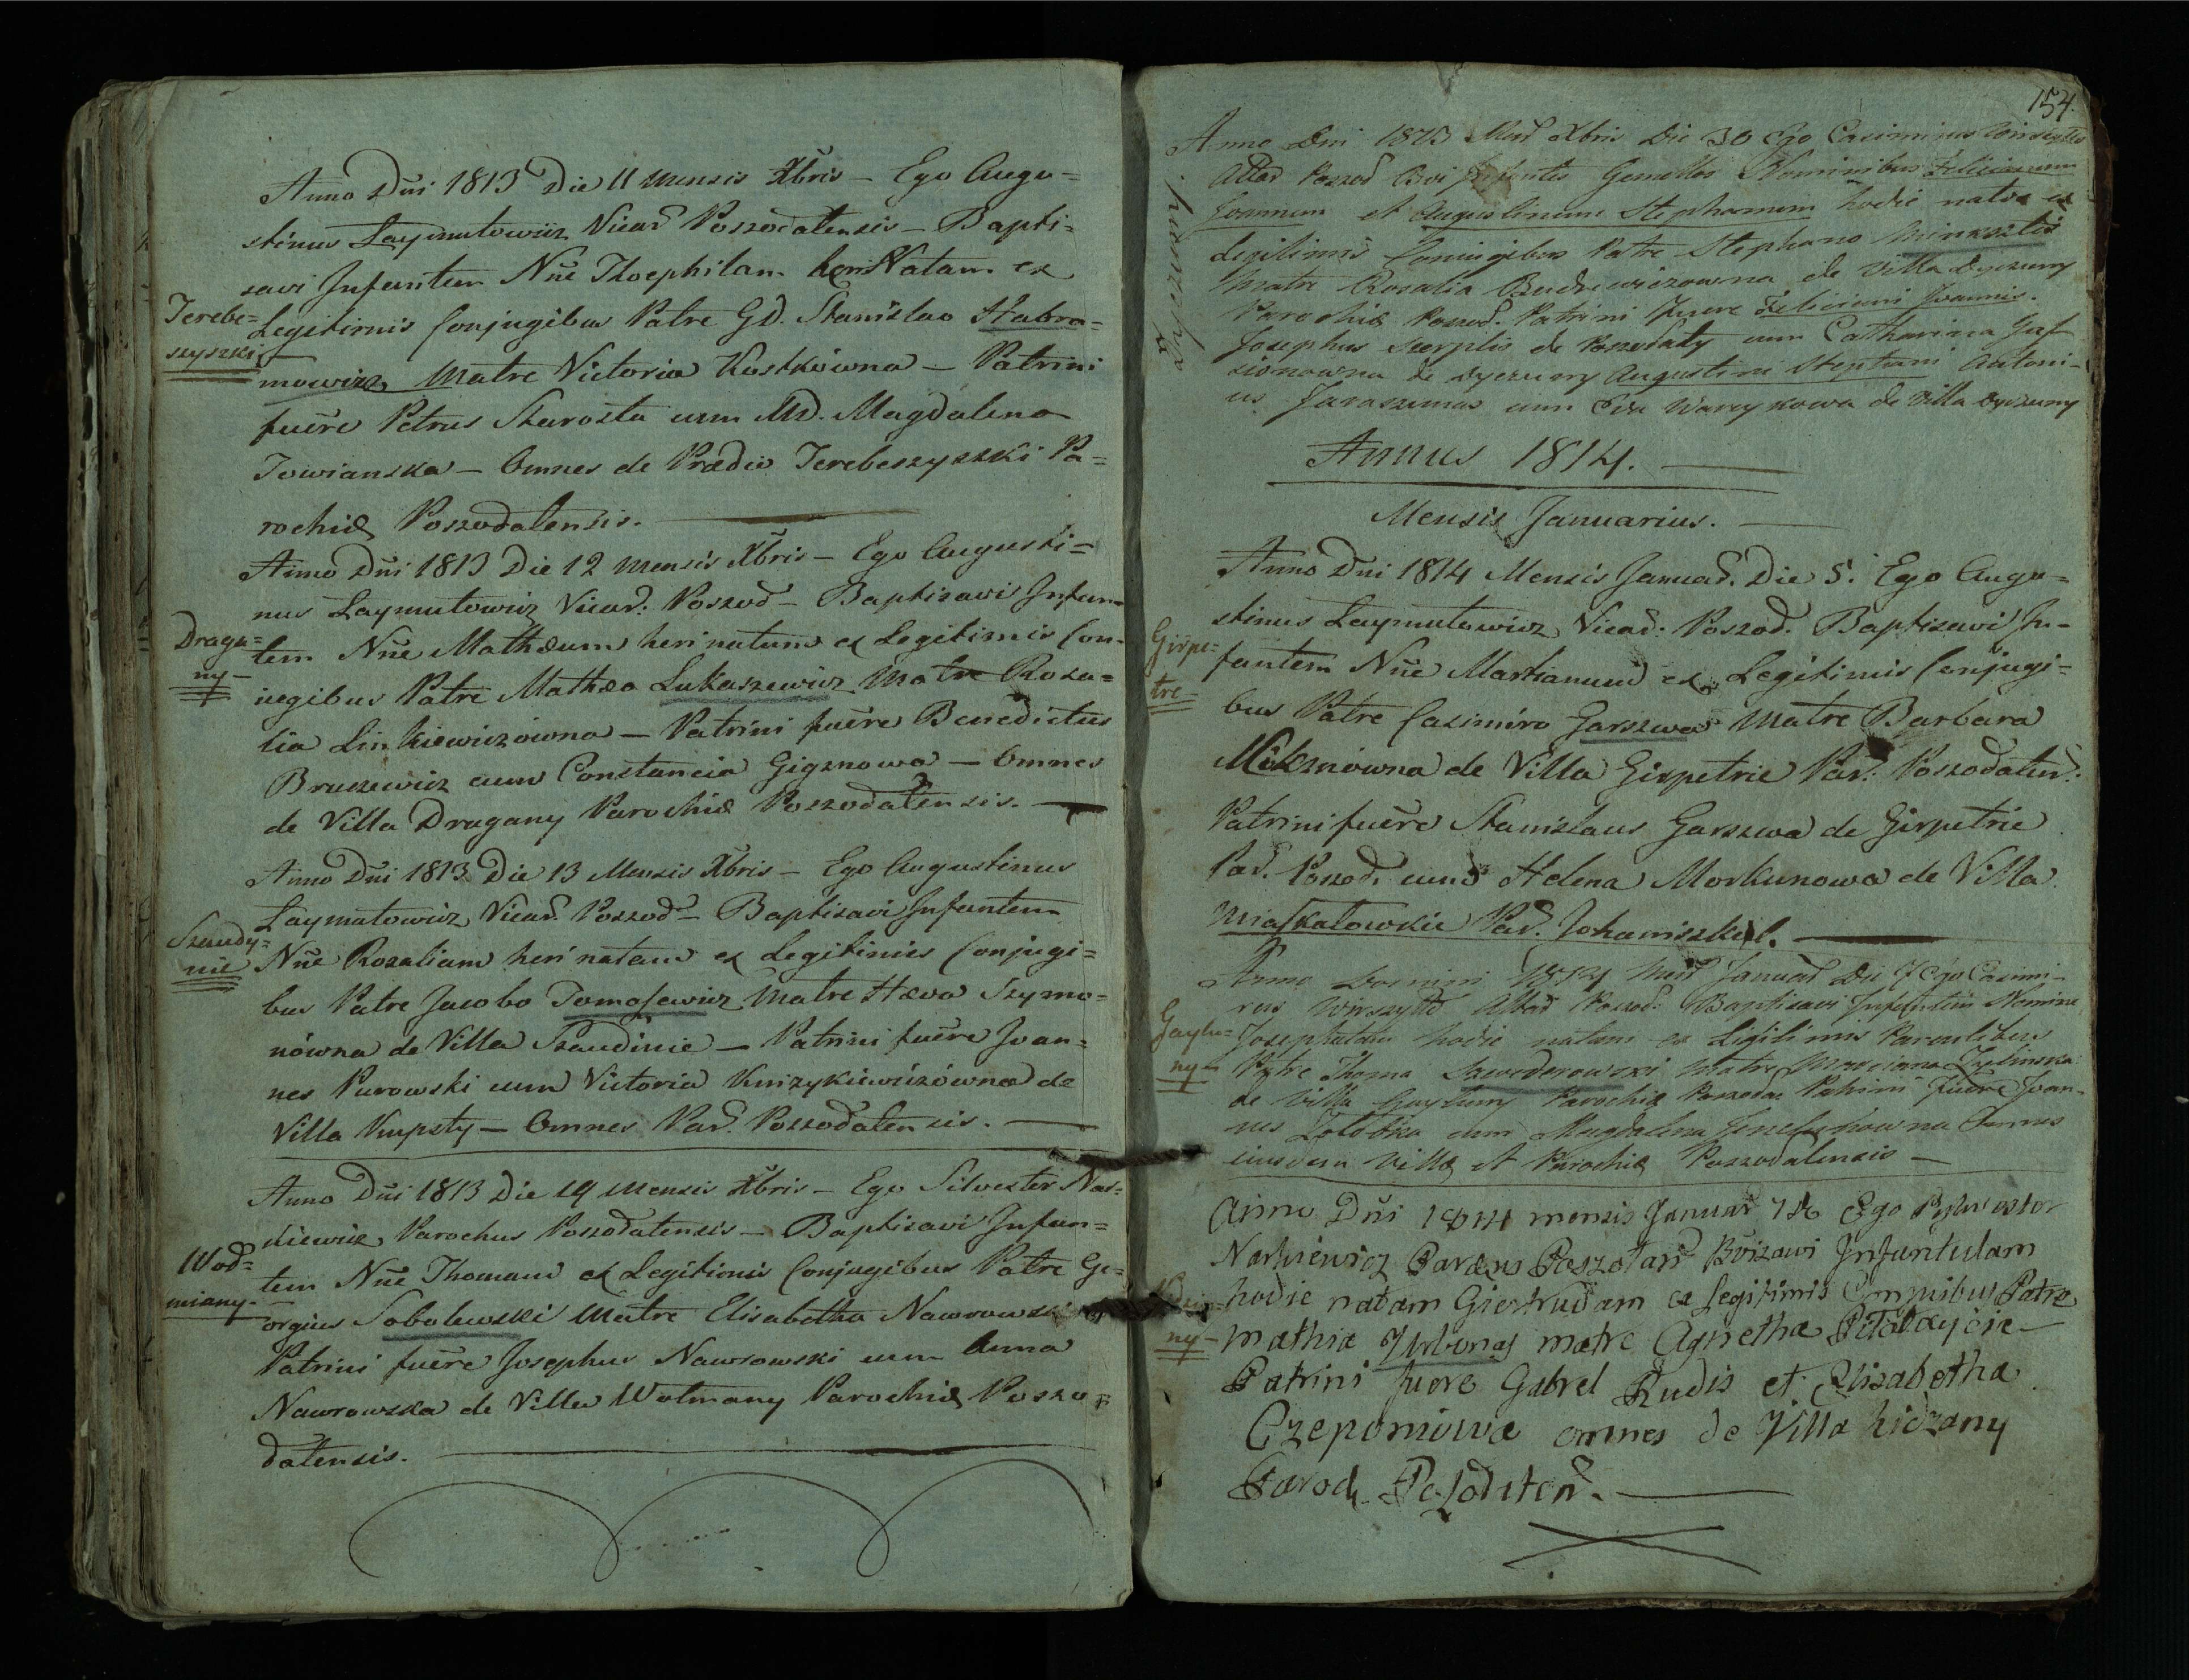 Anno Dni 1813 Die 11 Mensis Xbris – Ego Augu=
stinus Laymutowicz Vicar Poszodatensis – Bapti=
savi Infantem Nne Theophilam heri Natam ex
Terebe=
szyszki
Legitimis Conjugibus Patre GD. Stanislao Stabro=
mowicz Matre Victoria Kostkówna – Patrini
fuere Petrus Starosta cum MD. Magdalena
Towianska – Omnes de Prædio Terebeszyszki Pa=
rochiæ Poszodatensis.
Anno Dni 1813 Die 12 Mensis Xbris – Ego Augusti=
nus Laymutowicz Vicar: Poszod – Baptisavi Infan=
Draga=
ny –
tem Nne Mathæum heri natum ex Legitimis Con=
iugibus Patre Mathæo Lukaszewicz Matre Rosa=
lia Linkiewiczówna – Patrini fuere Benedictus
Bruczewicz cum Constancia Gigznowa – Omnes
de Villa Dragany Parochiæ Poszodatensis.
Anno Dni 1813 Die 13 Mensis Xbris – Ego Augustinus
Laymutowicz Vicar. Poszod – Baptisavi Infantem
Szaudy=
nie
Nne Rozaliam heri natam ex Legitimis Conjugi=
bus Patre Jacobo Tomaszewicz Matre Hæva Szymo=
nówna de Villa Szaudinie – Patrini fuere Joan=
nes Purowski cum Victoria Knizykiewiczówna de
Villa Kupsty – Omnes Par. Poszodatensis.
Anno Dni 1813 Die 19 Mensis Xbris – Ego Silvester Nar=
kiewicz Parochus Poszodatensis – Baptisavi Infan=
Wod=
miany
tem Nne Thomam ex Legitimis Conjugibus Patre Ge=
orgius Sobolewski Matre Elisabetha Nawrowska
Patrini fuere Josephus Nawrowski cum Anna
Nawrowska de Villa Wotmany Parochiæ Poszo=
datensis.
154.
Anno Dni 1813 Mens Xbris Die 30 Ego Casimirus Wirszyłło
Altar Poszod Infantes Gemellos Nominibus Felicianum
Joannem et Augustinum Stephanum hodie natos ex
Legitimis Coniugibus Patre Stephano Minksztis
Matre Rosalia Budrewiczowna de Villa Dyrzuny
Parochiæ Poszod. Patrini fuere Feliciani Joannis.
Josephus Szerplis de Poszodaty cum Catharina Gaf
de Dyrzuny Augustini Stephani Antoni-
us Jaraszunas cum Eva Warcykowa de Villa Dyrzuny
Annus 1814.
Mensis Januarius.
Anno Dni 1814 Mensis Januar. Die 5. Ego Augu=
stinus Laymutowicz Vicar: Poszod. Baptisavi In=
Girpe=
trie
fantem Nne Martianum ex Legitimis Conjugi=
bus Patre Casimiro Garszwa Matre Barbara
Mikznówna de Villa Girpetrie Par: Poszodaten:
Patrini fuere Stanislaus Garszwa de Girpetrie
Par. Poszod. cum Helena Morkunowa de Villa
Miaszkatowskie Par. Johaniszkiel.
Anno Domini 1814 Mens Januar Die 7 Ego Casimi-
rus Wirszyłło Altar Poszod: Baptisavi Infantem Nomine
Gaylu=
ny –
Josephatam hodie natam ex Legitimis Parentibus
Patre Thoma Szwederowski Matre Marciana Zielinska
de Villa Gayluny Parochiæ Poszodat Patrini fuere Joan-
nes Zolobka cum Magdalena Omnes
eiusdem Villæ et Parochiæ Poszodatensis –
Anno Dni 1814 mensis Januar 7 Ego Sylwester
Narkiewicz Parochus Poszolat Bvizawi Infantulam
ny –
hodie natam Giertrudam ex Legitimis Conjuibus Patre
Mathia Jurbonas matre Agnetha Pitolayćie –
Patrini fuere Gabrel Rudis et Elisabetha
Czeponiowa omnes de Villa hidzany
Paroch Poszolaten.